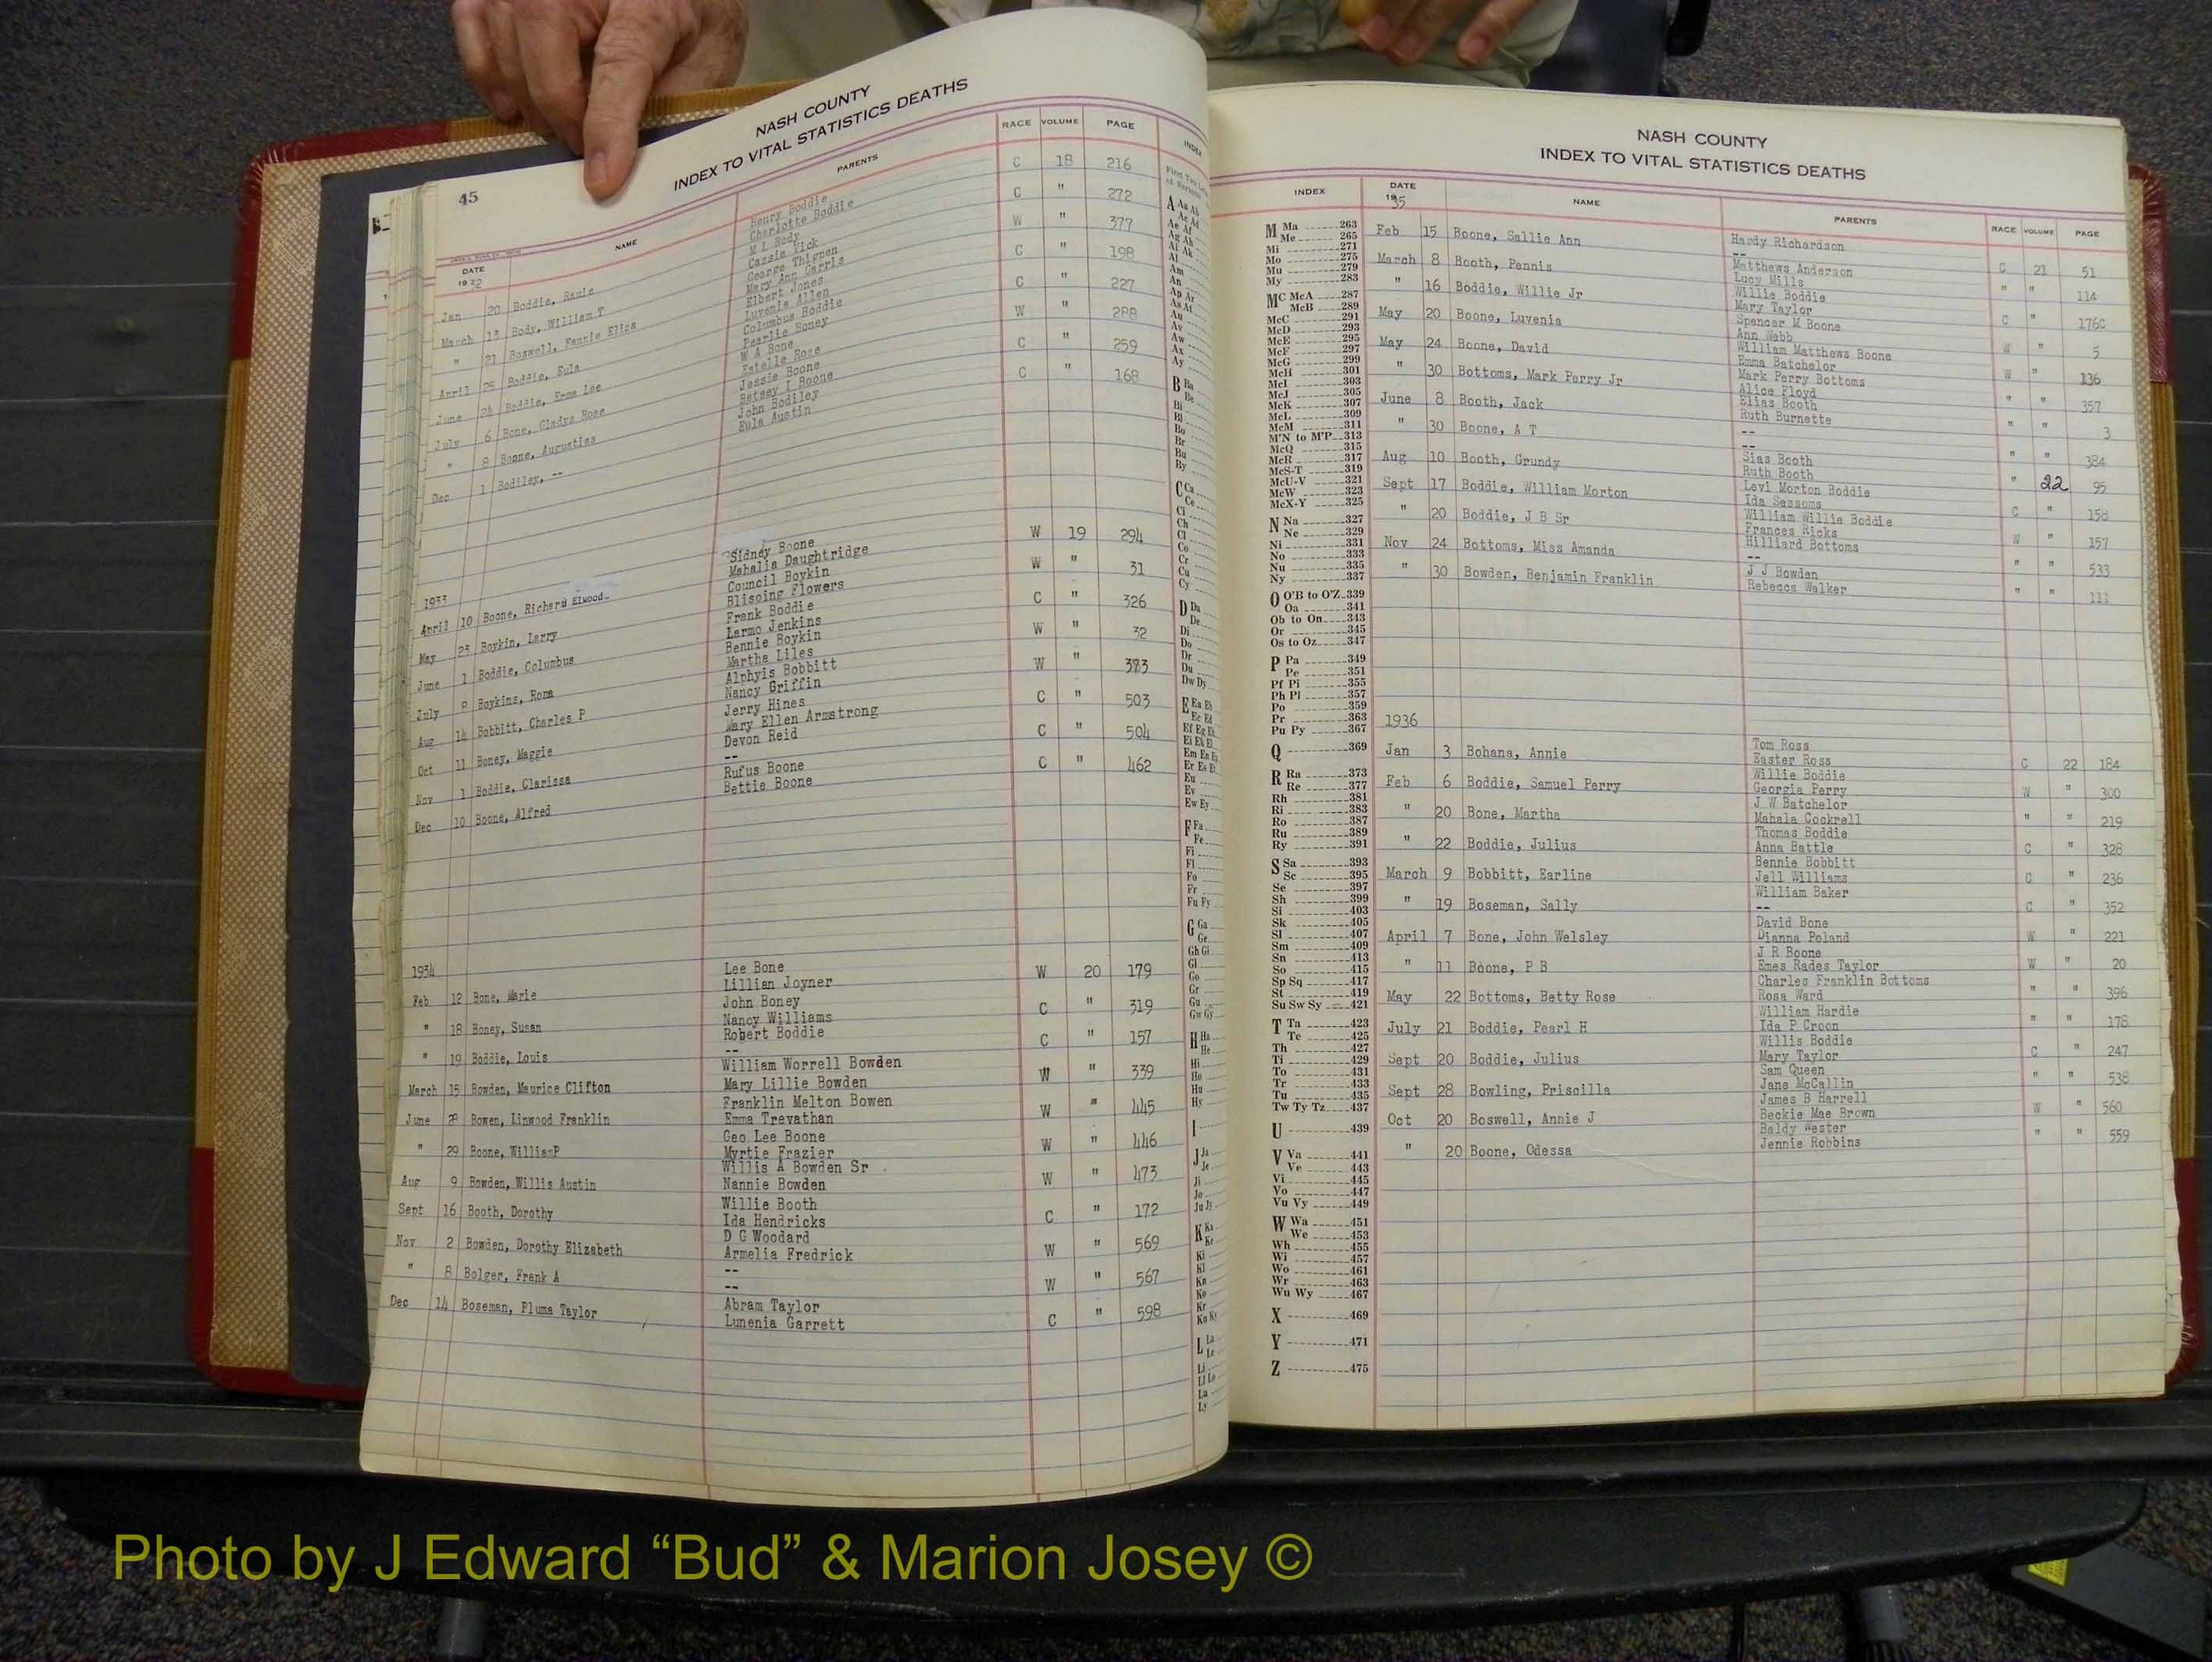 45
NASH COUNTY
INDEX TO VITAL STATISTICS DEATHS
DATE NAME PARENTS RACE VOLUME PAGE
1932
Jan 20 Boddie, Ramie Henry Boddie C 18 216
Charlotte Boddie
March 13 Body, William T M L Body C " 272
Cassie Vick
" 21 Boswell, Fannie Eliza George Thigpen W " 377
Mary Ann Garris
April 25 Boddie, Eula Elbert Jones C " 198
Luvenia Allen
June 24 Boddie, Erma Lee Columbus Boddie C " 227
Pearlie Boney
July 6 Bone, Gladys Rose W A Bone W " 288
Estelle Rose
" 8 Boone, Augustias Jessie Boone C " 259
Betsey I Boone
Dec 1 Bodiley, -- John Bodiley C " 168
Eula Austin
1933
April 10 Boone, Richard Elwood Sidney Boone W 19 294
Mahalia Daughtridge
May 23 Boykin, Larry Council Boykin W " 31
Blisoing Flowers
June 1 Boddie, Columbus Frank Boddie C " 326
Larmo Jenkins
July 8 Boykins, Roma Bennie Boykin W " 32
Martha Liles
Aug 14 Bobbitt, Charles P Alphyis Bobbitt W " 373
Nancy Griffin
Oct 11 Boney, Maggie Jerry Hines C " 503
Mary Ellen Armstrong
Nov 1 Boddie, Clarissa Devon Reid C " 504
--
Dec 10 Boone, Alfred Rufus Boone C " 462
Bettie Boone
1934
Feb 12 Bone, Marie Lee Bone W 20 179
Lillian Joyner
" 18 Boney, Susan John Boney C " 319
Nancy Williams
" 19 Boddie, Louis Robert Boddie C " 157
--
March 15 Bowden, Maurice Clifton William Worrell Bowden W " 339
Mary Lillie Bowden
June 28 Bowen, Linwood Franklin Franklin Melton Bowen W " 445
Emma Trevathan
" 29 Boone, William P Geo Lee Boone W " 446
Myrtie Frazier
Aug 9 Bowden, Willis Austin Willis A Bowden Sr W " 473
Nannie Bowden
Sept 16 Booth, Dorothy Willie Booth C " 172
Ida Hendricks
Nov 2 Bowden, Dorothy Elizabeth D G Woodard W " 569
Armelia Fredrick
" 8 Bolger, Frank A -- W " 567
--
Dec 14 Boseman, Pluma Taylor Abram Taylor C " 598
Lunenia Garrett
INDEX
First Two Letters
of Surnames
A Aa Ab
Ac Ad
Ae Af
Ag Ah
Ai Ak
Al
Am
An
Ap Ar
As At
Au
Av
Aw
Ax
Ay
B Ba
Be
Bi
Bl
Bo
Br
Bu
By
C Ca
Ce
Ci
Ch
Cl
Co
Cr
Cu
Cy
D Da
De
Di
Do
Dr
Du
Dw Dy
E Ea Eb
Ec Ed
Ef Eg Eh
Ei Ek El
Em En Ep
Er Es Et
Eu
Ev
Ew Ey
F Fa
Fe
Fi
Fl
Fo
Fr
Fu Fy
G Ga
Ge
Gh Gi
Gl
Go
Gr
Gu
Gw Gy
H Ha
He
Hi
Ho
Hu
Hy
I
J Ja
Je
Ji
Jo
Ju Jy
K Ka
Ke
Ki
Kl
Kn
Ko
Kr
Ku Ky
L La
Le
Li
Ll Lo
Lu
Ly
NASH COUNTY
INDEX TO VITAL STATISTICS DEATHS
INDEX DATE NAME PARENTS RACE VOLUME PAGE
1935
M Ma 263
Me 265
Mi 271
Mo 275
Mu 279
My 283
MC McA 287
McB 289
McC 291
McD 293
McE 295
McF 297
McG 299
McH 301
McI 303
McJ 305
McK 307
McL 309
McM 311
M'N to M'P 313
McQ 315
McR 317
McS-T 319
McU-V 321
McW 323
McX-Y 325
N Na 327
Ne 329
Ni 331
No 333
Nu 335
Ny 337
O O'B to O'Z 339
Oa 341
Ob to On 343
Or 345
Os to Oz 347
P Pa 349
Pe 351
Pf Pi 355
Ph Pl 357
Po 359
Pr 363
Pu Py 367
Q 369
R Ra 373
Re 377
Rh 381
Ri 383
Ro 387
Ru 389
Ry 391
S Sa 393
Sc 395
Se 397
Sh 399
Si 403
Sk 405
Sl 407
Sm 409
Sn 413
So 415
Sp Sq 417
St 419
Su Sw Sy 421
T Ta 423
Te 425
Th 427
Ti 429
To 431
Tr 433
Tu 435
Tw Ty Tz 437
U 439
V Va 441
Ve 443
Vi 445
Vo 447
Vu Vy 449
W Wa 451
We 453
Wh 455
Wi 457
Wo 461
Wr 463
Wu Wy 467
X 469
Y 471
Z 475
Feb 15 Boone, Sallie Ann Hardy Richardson C 21 51
--
March 8 Booth, Pennis Matthews Anderson " " 114
Lucy Mills
" 16 Boddie, Willie Jr Willie Boddie C " 176C
Mary Taylor
May 20 Boone, Luvenia Spencer M Boone W " 5
Ann Webb
May 24 Boone, David William Matthews Boone W " 136
Emma Batchelor
" 30 Bottoms, Mark Perry Jr Mark Perry Bottoms " " 357
Alice Floyd
June 8 Booth, Jack Elias Booth " " 3
Ruth Burnette
" 30 Boone, A T -- " " 384
--
Aug 10 Booth, Grundy Sias Booth " 22 95
Ruth Booth
Sept 17 Boddie, William Morton Levi Morton Boddie C " 158
Ida Sessoms
" 20 Boddie, J B Sr William Willie Boddie W " 157
Frances Ricks
Nov 24 Bottoms, Miss Amanda Hilliard Bottoms " " 533
--
" 30 Bowden, Benjamin Franklin J J Bowden " " 111
Rebecca Walker
1936
Jan 3 Bohana, Annie Tom Ross C 22 184
Easter Ross
Feb 6 Boddie, Samuel Perry Willie Boddie W " 300
Georgia Perry
" 20 Bone, Martha J W Batchelor " " 219
Mahala Cockrell
" 22 Boddie, Julius Thomas Boddie C " 328
Anna Battle
March 9 Bobbitt, Earline Bennie Bobbitt C " 236
Jell Williams
" 19 Boseman, Sally William Baker C " 352
--
April 7 Bone, John Welsley David Bone W " 221
Dianna Poland
" 11 Boone, P B J R Boone W " 20
Emes Rades Taylor
May 22 Bottoms, Betty Rose Charles Franklin Bottoms " " 396
Rosa Ward
July 21 Boddie, Pearl H William Hardie " " 178
Ida P Croon
Sept 20 Boddie, Julius Willis Boddie C " 247
Mary Taylor
Sept 28 Bowling, Priscilla Sam Queen " " 538
Jane McCallin
Oct 20 Boswell, Annie J James B Harrell W " 560
Beckie Mae Brown
" 20 Boone, Odessa Baldy Wester " " 559
Jennie Robbins
Photo by J Edward “Bud” & Marion Josey ©